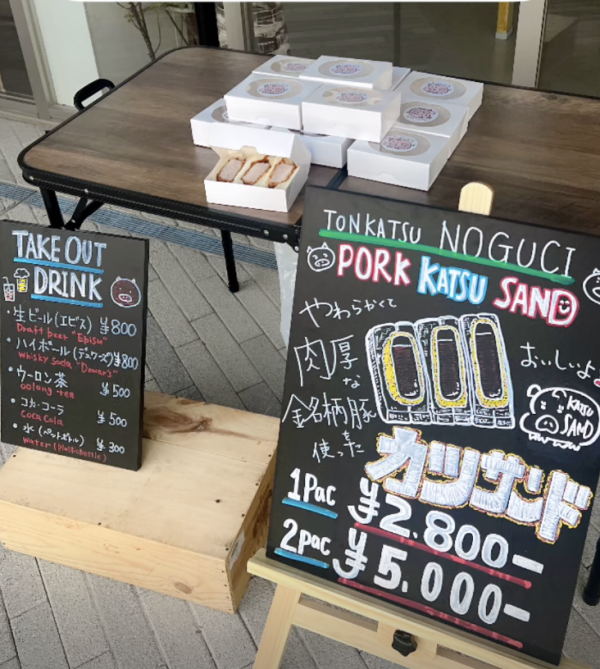 TAKE OUT
DRINK
・生ビール(エビス) ¥800
Draft beer "Ebisu"
・ハイボール(デュワーズ) ¥800
whisky soda "Dewar's"
・ウーロン茶 ¥500
oolong tea
・コカ・コーラ ¥500
Coca Cola
・水(ペットボトル) ¥300
water (Plasticbottle)
TONKATSU NOGUCI
PORK KATSU SAND
やわらかくて
肉厚な
おいしいよ
金銘柄豚
使った
KATSU
SAND
カツサンド
1Pac ¥2.800-
2pac ¥5.000-